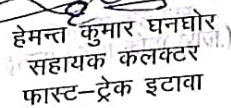 हेमन्त कुमार घनघोर
सहायक कलक्टर
फास्ट-ट्रेक इटावा